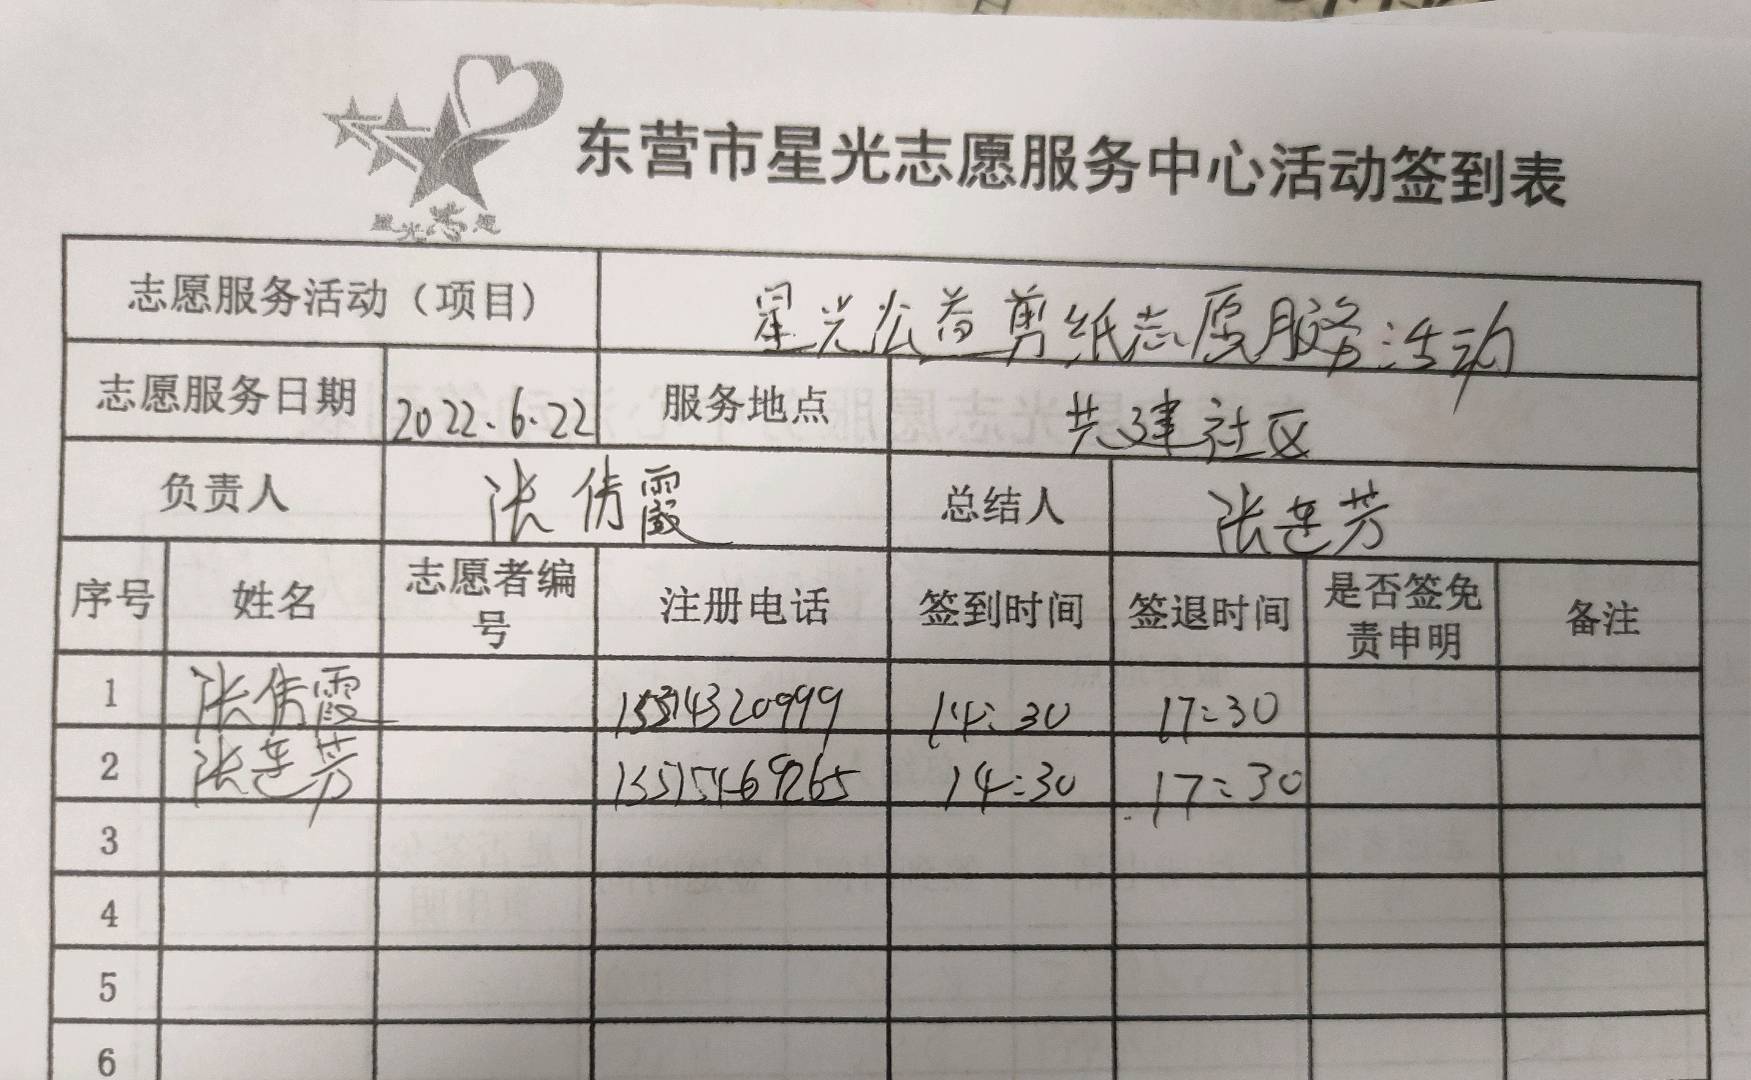 星光志愿
东营市星光志愿服务中心活动签到表
志愿服务活动（项目） 星光公益剪纸志愿服务活动
志愿服务日期 2022.6.22 服务地点 共建社区
负责人 张倩霞 总结人 张莲芳
序号 姓名 志愿者编号 注册电话 签到时间 签退时间 是否签免责申明 备注
1 张倩霞 14:30 17:30
2 张莲芳 14:30 17:30
3
4
5
6